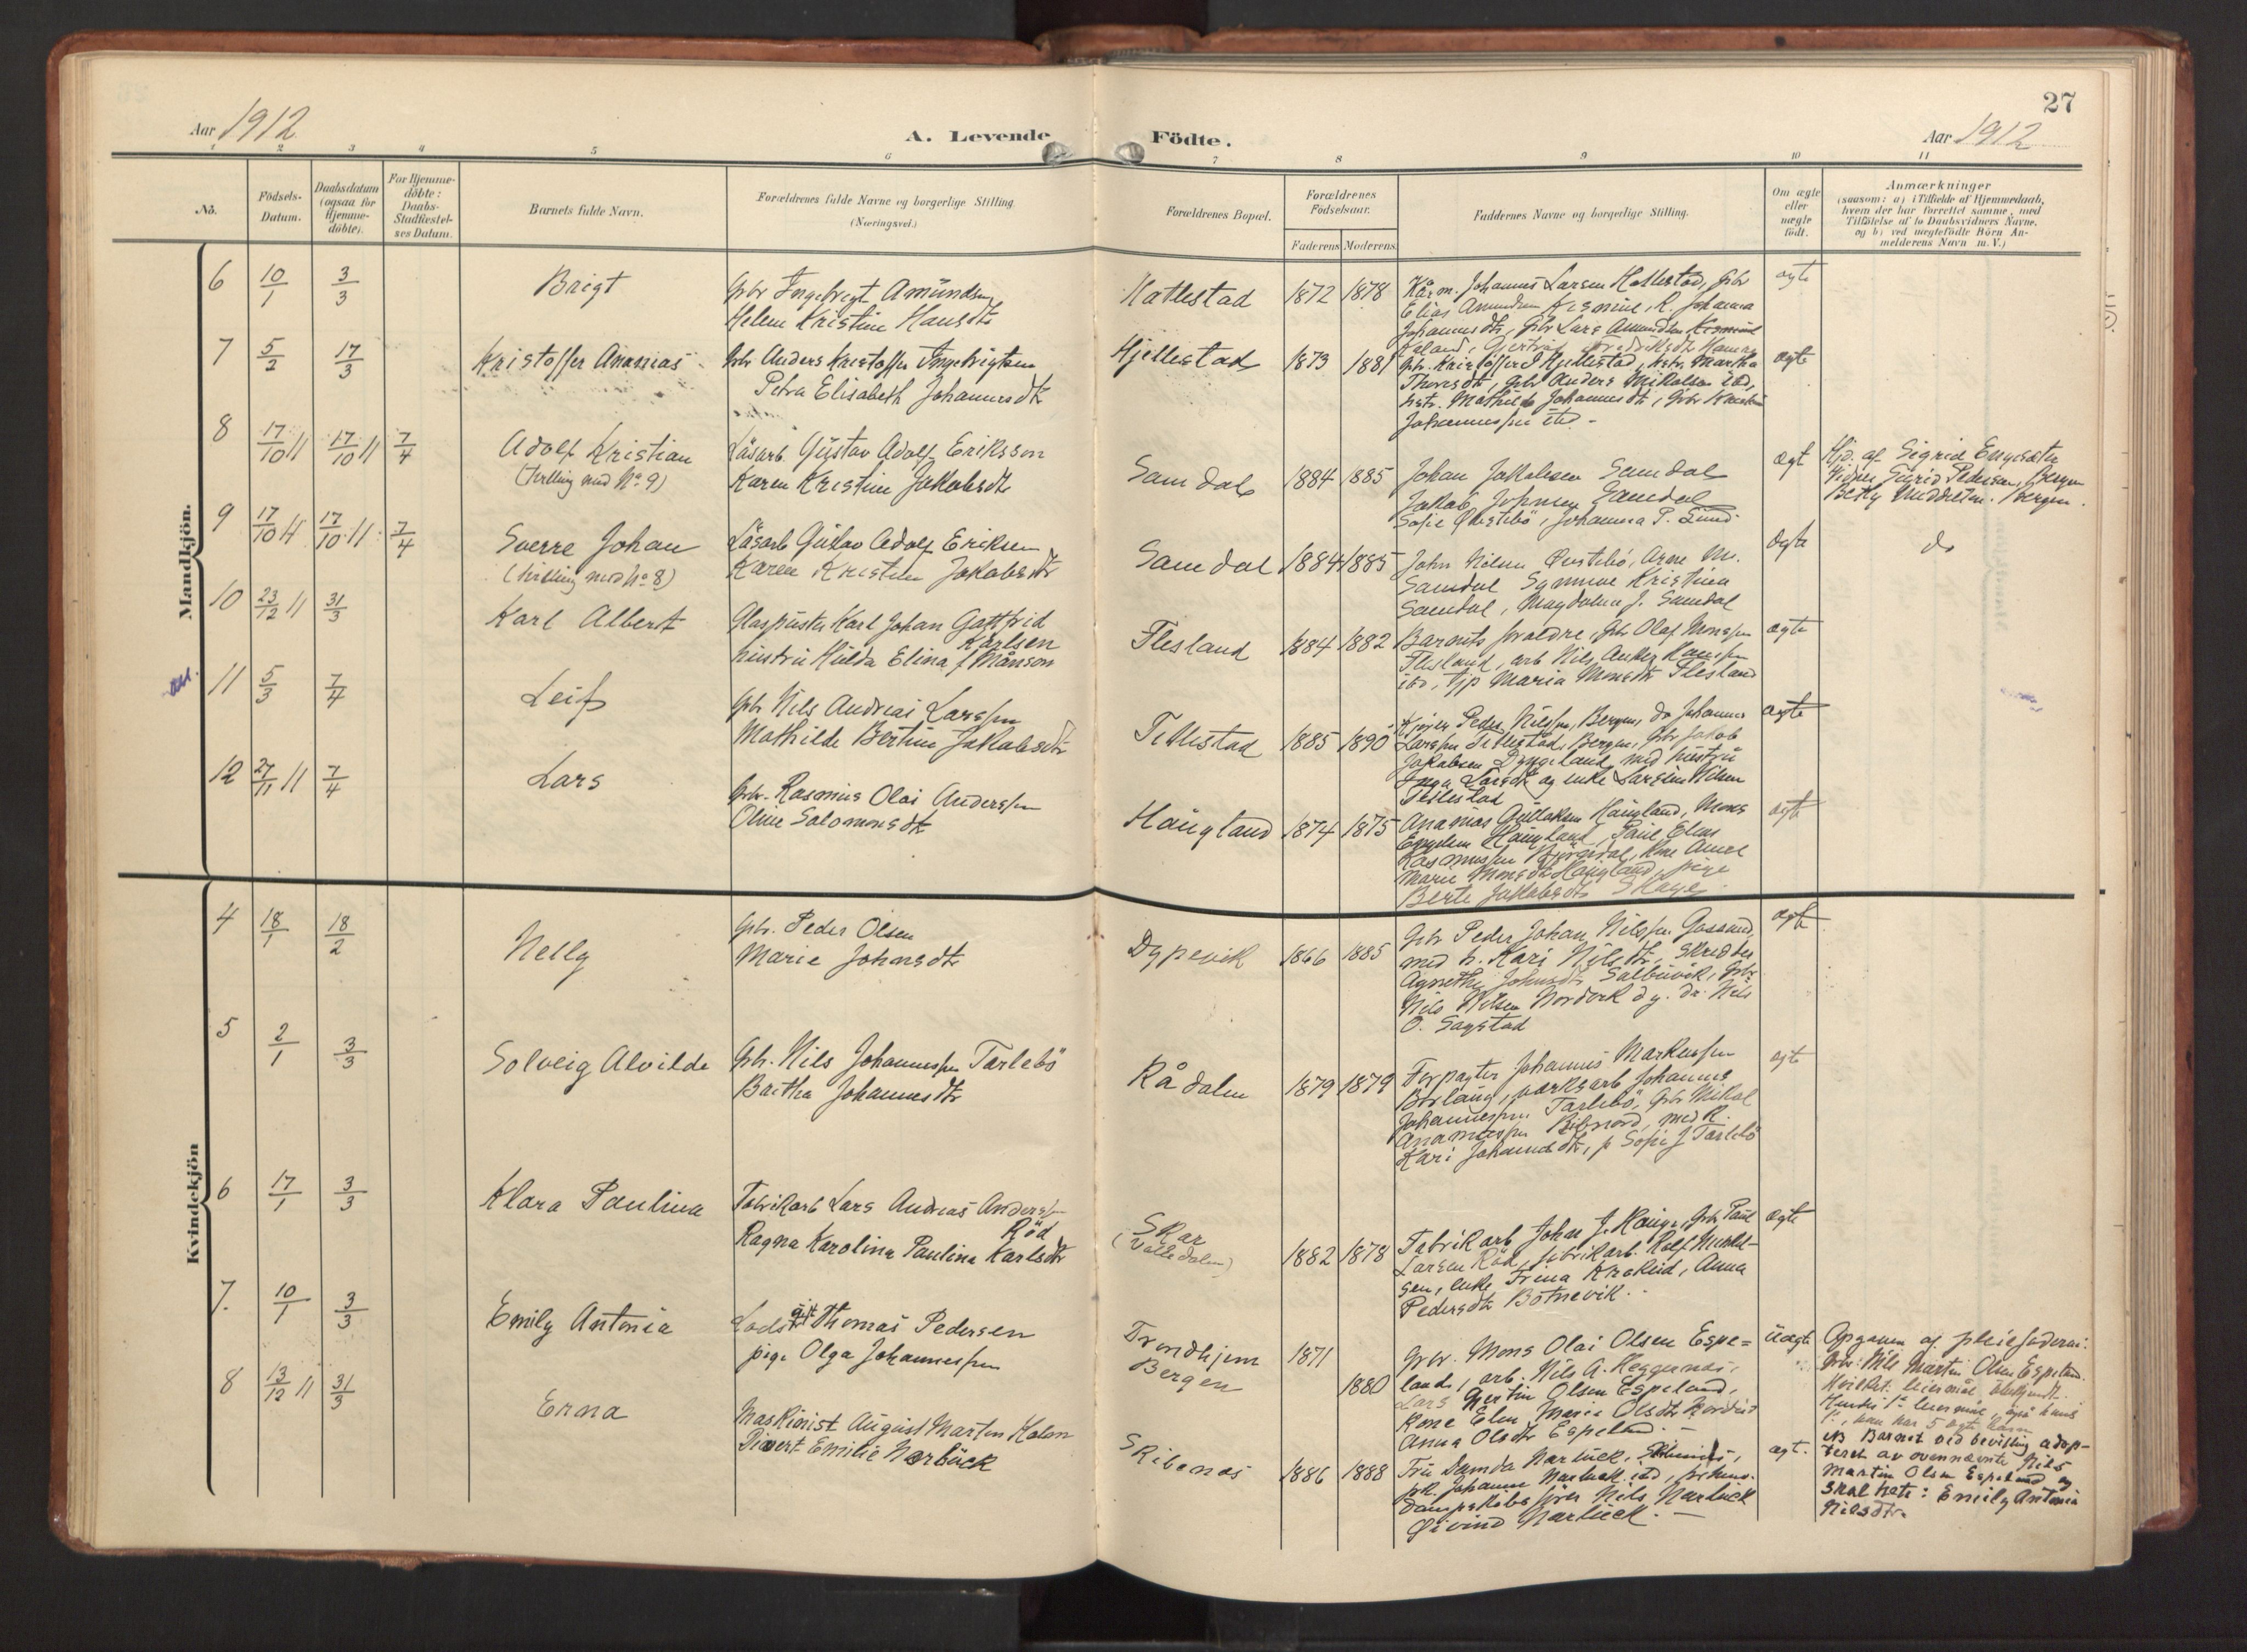 27
Aar 1912.
A. Levende Födte.
Aar 1912
1 2 3 4 5 6 7 8 9 10 11
No.
Födsels-Datum.
Daabsdatum (ogsaa for Hjemmedöbte).
For Hjemmedöbte: Daabs-Stadfæstelses Datum.
Barnets fulde Navn.
Forældrenes fulde Navne og borgerlige Stilling (Næringsvei.)
Forældrenes Bopæl.
Forældrenes Födselsaar.
Faderens Moderens
Faddernes Navne og borgerlige Stilling.
Om ægte eller uægte födt.
Anmærkninger
(saasom: a) i Tilfælde af Hjemmedaab,
hvem der har forrettet samme, med
Tilföielse af to Daabsvidners Navne,
og b) ved uægtefödte Börn An-
melderens Navn m. V.)
Mandkjön.
6 10/1 3/3 Brigt
Gbr Ingebrigt Amundsen
Helene Kristine Hansdtr
Hatlestad 1872 1878
Kårm. Johannes Larsen Hatlestad, Gbr
Elias Amundsen
Johannesdtr, Gbr Lars Amundsen
ægte
7 5/2 17/3 Kristoffer Ananias
Gbr Anders Kristoffer Ingebrigtsen
Petra Elisabeth Johannesdtr
Hjellestad 1873 1881
Gbr. Kristoffer J Hjellestad, hstr. Martha
Thoresdtr, Gbr Anders Mikalsen ibd,
hstr. Mathilde Johannesdtr, Gbr
Johannessen ibd. -
ægte
8 17/10 11 17/10 11 7/4 Adolf Kristian
(tvilling med No. 9)
Låsarb Gustav Adolf Eriksson
Karen Kristine Jakobsdtr
Samdal 1884 1885
Johan Jakobsen Samdal
Jakob Johnsen Samdal
Sofie Øvstebö, Johanna P. Sund.
ægt
Hjd. af Sigrid Engesæter
Vidner Gurid Pedersen, Bergen
Betty Middelton. Bergen.
9 17/10 11 17/10 11 7/4 Sverre Johan
(tvilling med No. 8)
Låsarb Gustav Adolf Eriksen
Karen Kristine Jakobsdtr
Samdal 1884 1885
John Nilsen Øvstebö, Arne M.
Samdal Synnöve Kristina
Samdal, Magdalena J. Samdal
ægte
do
10 23/12 11 31/3 Karl Albert
Glaspuster Karl Johan Gottfrid
Karlsen
hustru Hulda Elina f. Månson
Flesland 1884 1882
Barnets foreldre, Gbr Olaf Monsen
Flesland, arb Nils Anker Hansen
ibd, tjp Maria Monsdtr Flesland
ægte
11 5/3 7/4 Leif
Gbr Nils Andreas Larssen
Mathilde Bertine Jakobsdtr
Titlestad 1885 1890
Kjøier Peder Nilssen, Bergen, do Johannes
Larssen Titlestad, Bergen, Gbr Jakob
Jakobsen Dyngeland med hustru
Inga Larsdtr og enke Larsine Nilsen
Titlestad
ægte
12 27/11 11 7/4 Lars
Gbr. Rasmus Olai Anderssen
Oline Salomonsdtr
Haugland 1874 1875
Ananias Gullaksen Haugland, Mons
Engelsen Haugland, Paul Elias
Rasmussen, Kone Anne
Marie Monsdtr Haugland, pige
Berte Jakobsdtr Skage.
ægte
Kvindekjön
4 18/1 18/2 Nelly
Gbr. Peder Olsen
Marie Johnsdtr
Dypevik 1866 1885
Gbr Peder Johan Nilssen Gaasand,
med h. Kari Nilsdtr, skrædder
Agnethe Johnsdtr Salbuvik, Gbr
Nils Nilsen Nordvik og do Nils
O. Sagstad
ægt
5 2/1 3/3 Solveig Alvilde
Gbr. Nils Johannessen Tarlebö
Bertha Johannesdtr
Rådalen 1879 1879
Forpagter Johannes Markussen
Birlaug, værksarb Johannes
Johannessen Tarlebö, Gbr Mikal
Ananiassen Riisnord, med K
Kari Johannesdtr, p Sofie J Tarlebö
ægte
6 17/1 3/3 Klara Paulina
Fabrikarb Lars Andreas Anderssen
Röd
Ragna Karolina Paulina Karlsdtr
Skar
1882 1878
Fabrikarb Johan J. Hauge, Gbr Paul
Larsen Röd, fabrikarb. Rolf
sen, enke Trina Krokeid, Anna
Pedersdtr Botnevik. -
ægte
7. 10/1 3/3 Emily Antonia
Lods gift Thomas Pedersen
pige Olga Johannessen
Trondhjem
Bergen
1871
1880
Gbr. Mons Olai Olsen Espe=
land, arb. Nils A. Heggernæs,
Lars Martin Olsen Espeland,
Kone Elen Marie Olsdtr
Anna Olsdtr Espeland. -
Uægte
Opgaven af pleiefaderen:
Gbr. Nils Martin Olsen Espeland.
NB Barnet ved bevilling adop-
teret av ovennævnte Nils
Martin Olsen Espeland og
skal hete: Emily Antonia
Nilsdtr.
8 13/12 11 31/3 Erna
Maskinist August Marten Holm
Emilie Narbück
Skibenes 1886 1888
Fru Damda Narbück,
frk. Johanne Narbück ibd,
Dampskibsfører Nils Narbück
Øivind Narbück. -
ægt.